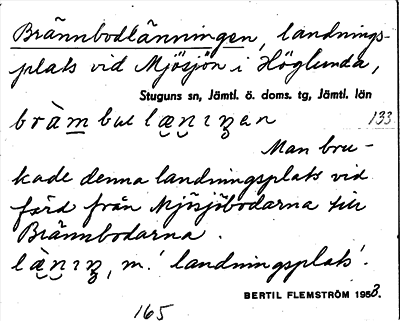 Brännbodlänningen, landnings-
plats vid Mjösjön i Höglunda,
Stuguns sn, Jämtl. ö. doms. tg, Jämtl. län
133
Man bru-
kade denna landningsplats vid
färd från Mjösjöbodarna till
Brännbodarna.
m.! landningsplats!
BERTIL FLEMSTRÖM 1958.
165